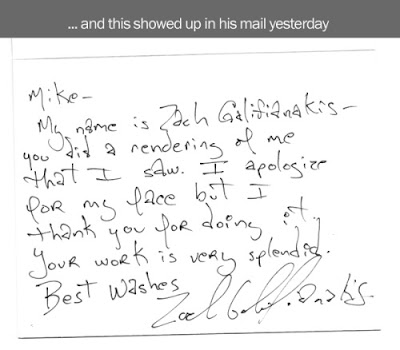 ... and this showed up in his mail yesterday
Mike-
My name is Zach Galifianakis-
you did a rendering of me
that I saw. I apologize
for my face but I
thank you for doing it.
Your work is very splendid.
Best Washes
Zach Galifianakis